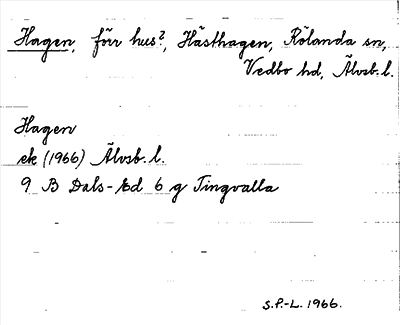 Hagen, förr hus?, Hästhagen, Rölanda sn,
Vedbo hd, Älvsb. l.
Hagen
ek (1966) Älvsb. l.
9 B Dals-Ed 6 g Tingvalla
S.P.-L. 1966.